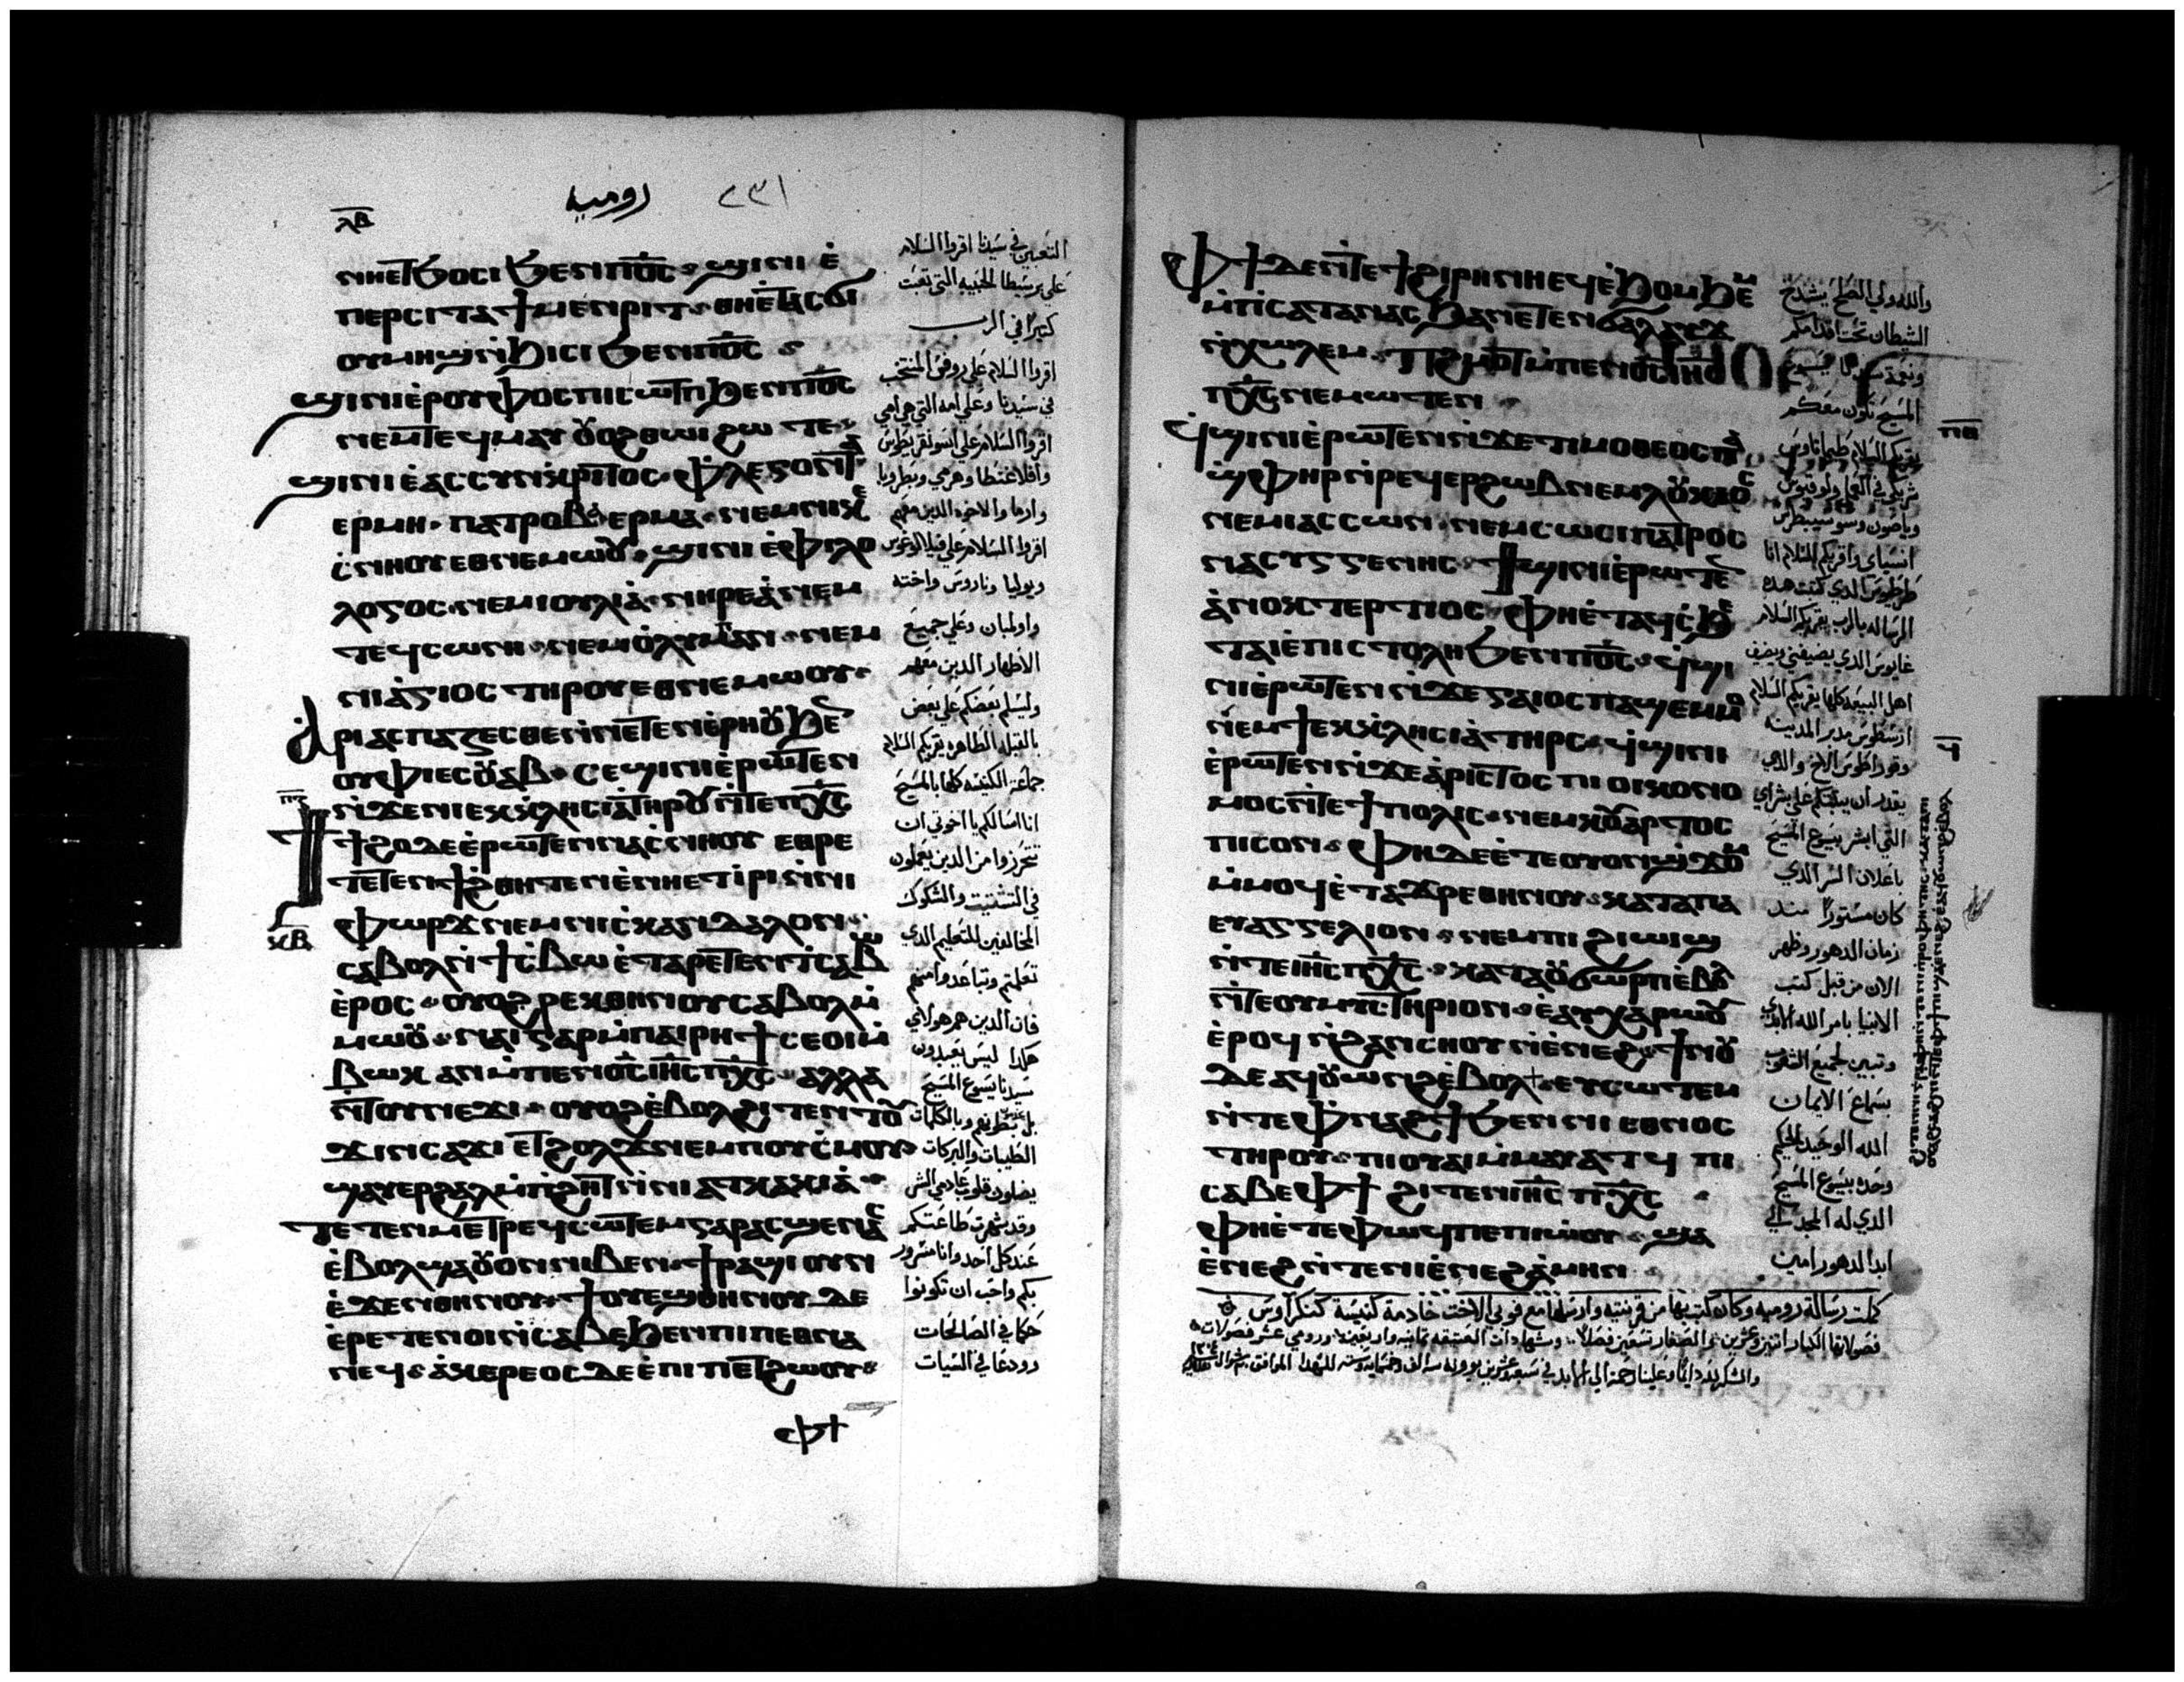 ⲗⲃ
روميه
٢٣١
ⲛⲏⲉⲧϧⲟⲥⲓ ϧⲉⲛⲡⲟ̅ⲥ̅ ϣⲓⲛⲓ ⲉ̀
ⲡⲉⲣⲥⲓⲧⲁ ϯⲙⲉⲛⲣⲓⲧ ⲑⲏⲉ̀ⲧⲁⲥϭⲓ
ⲟⲩⲙⲏϣ ⲛ̀ϧⲓⲥⲓ ϧⲉⲛⲡⲟ̅ⲥ̅
ϣⲓⲛⲓ ⲉ̀ⲣⲟⲩⲫⲟⲥ ⲡⲓⲥⲱⲧⲡ ϧⲉⲛⲡⲟ̅ⲥ̅
ⲛⲉⲙⲧⲉϥⲙⲁⲩ ⲟⲩⲟϩ ⲑⲱⲓ ϩⲱ ⲧⲉ
ϣⲓⲛⲓ ⲉ̀ⲁⲥⲥⲩⲛⲕⲣⲓⲧⲟⲥ ⲫⲗⲉⲅⲟⲛⲧⲁ
ⲉⲣⲙⲏ ⲡⲁⲧⲣⲟⲃⲁ ⲉⲣⲙⲁ ⲛⲉⲙⲛⲓⲕⲉ
ⲥ̀ⲛⲏⲟⲩ ⲉⲑⲛⲉⲙⲱⲟⲩ ϣⲓⲛⲓ ⲉ̀ⲫⲓⲗⲟ
ⲗⲟⲅⲟⲥ ⲛⲉⲙⲓⲟⲩⲗⲓⲁ̀ ⲛⲏⲣⲉⲁ̀ ⲛⲉⲙ
ⲧⲉϥⲥⲱⲛⲏ ⲛⲉⲙⲟ̀ⲗⲩⲙⲡⲁⲛ ⲛⲉⲙ
ⲛⲓⲁ̀ⲅⲓⲟⲥ ⲧⲏⲣⲟⲩ ⲉⲑⲛⲉⲙⲱⲟⲩ
ⲁⲣⲓⲁⲥⲡⲁⲍⲉⲥⲑⲉ ⲛ̀ⲛⲉⲧⲉⲛⲉ̀ⲣⲏⲟⲩ ϧⲉⲛ
ⲟⲩⲫⲓ ⲉⲥⲟⲩⲁⲃ ⲥⲉϣⲓⲛⲓ ⲉ̀ⲣⲱⲧⲉⲛ
ⲛ̀ϫⲉⲛⲓⲉⲕⲕⲗⲏⲥⲓⲁ̀ ⲧⲏⲣⲟⲩ ⲛ̀ⲧⲉⲡⲭ̅ⲥ̅
ϯϯϩⲟ ⲇⲉ ⲉ̀ⲣⲱⲧⲉⲛ ⲛⲁⲥ̀ⲛⲏⲟⲩ ⲉⲑⲣⲉ
ⲧⲉⲧⲉⲛϯϩⲑⲏⲧⲉⲛ ⲉ̀ⲛⲏⲉⲧⲓ̀ⲣⲓ ⲛ̀ⲛⲓ
ⲫⲱⲣϫ ⲛⲉⲙⲛⲓⲥ̀ⲕⲁⲛⲇⲁⲗⲟⲛ
ⲕⲃ
ⲥⲁⲃⲟⲗ ⲛ̀ϯⲥ̀ⲃⲱ ⲉ̀ⲧⲁⲣⲉⲧⲉⲛⲧⲥⲁⲃⲱ
ⲉ̀ⲣⲟⲥ ⲟⲩⲟϩ ⲣⲉⲕⲑⲏⲛⲟⲩ ⲥⲁⲃⲟⲗ ⲙ̀
ⲙⲱⲟⲩ ⲛⲁⲓ ⲅⲁⲣ ⲙ̀ⲡⲁⲓⲣⲏϯ ⲥⲉⲟⲓ ⲙ̀
ⲃⲱⲕ ⲁⲛ ⲙ̀ⲡⲉⲛⲟ̅ⲥ̅ ⲓⲏ̅ⲥ̅ ⲡⲭ̅ⲥ̅ ⲁⲗⲗⲁ
ⲛ̀ⲧⲟⲩⲛⲉϫⲓ ⲟⲩⲟϩ ⲉ̀ⲃⲟⲗϩⲓⲧⲉⲛ ⲧⲟⲩ
ϫⲓⲛⲥⲁϫⲓ ⲉⲧϩⲟⲗϫ ⲛⲉⲙⲡⲟⲩⲥ̀ⲙⲟⲩ
ϣⲁⲩⲉⲣϩⲁⲗ ⲙ̀ⲡ̀ϩⲏⲧ ⲛ̀ⲛⲓⲁⲧⲕⲁⲕⲓⲁ̀
ⲡⲉⲧⲉⲛⲙⲉⲧⲣⲉϥⲥⲱⲧⲉⲙ ⲅⲁⲣ ⲁⲥϣⲉⲛⲁⲥ
ⲉ̀ⲃⲟⲗ ϣⲁⲟⲩⲟⲛ ⲛⲓⲃⲉⲛ ϯⲣⲁϣⲓ ⲟⲩⲛ
ⲉ̀ϫⲉⲛⲑⲏⲛⲟⲩ ϯⲟⲩⲉϣⲑⲏⲛⲟⲩ ⲇⲉ
ⲉ̀ⲣⲉⲧⲉⲛⲟⲓ ⲛ̀ⲥⲁⲃⲉ ϧⲉⲛⲡⲓⲡⲉⲑⲛⲁ
ⲛⲉϥ ⲁ̀ⲕⲉⲣⲉⲟⲥ ⲇⲉ ⲉ̀ⲡⲓⲡⲉⲧϩⲱⲟⲩ
ⲫϯ
التعبين في سيدنا اقروا السلام
على برسيطا الحبيبه التي تعبت
كثيرا في الرب
اقروا السلام على روفس المنتخب
في سيدنا وعلى امه التي هي امي
اقروا السلام على اسونقريطوس
وافلاغنطا وهرمي وبطروبا
وارما والاخوه الدين معهم
اقروا السلام على فيلالوغوس
ويوليا وناروس واخته
واولمبان وعلى جميع
الاطهار الدين معهم
وليسلم بعضكم على بعض
بالقبله الطاهره يقريكم السلام
جماعة الكنيسه كلها بالمسيح
انا اسالكم يا اخوتي ان
تتحرزوا من الدين يعملون
في التشتيت والشكوك
المخالفين للتعليم الدي
تعلمتم وتباعدوا منهم
فان الدين هم هولاي
هكدا ليس يعبدون
سيدنا يسوع المسيح
بل بطونهم وبالكلمات
الطيبات والبركات
يضلون قلوب عادمي الشر
وقد شهرت طاعتكم
عند كل احد وانا مسرور
بكم واحب ان تكونوا
حكما في الصالحات
وودعا في السيات
ⲫϯ ⲇⲉ ⲛ̀ⲧⲉϯϩⲓⲣⲏⲛⲏ ⲉϥⲉ̀ϧⲟⲙϧⲉⲙ
ⲙ̀ⲡⲥⲁⲧⲁⲛⲁⲥ ϧⲁⲛⲉⲧⲉⲛϭⲁⲗⲁⲩϫ
ⲛ̀ⲭⲱⲗⲉⲙ ⲡϩⲙⲟⲧ ⲙ̀ⲡⲉⲛⲟ̅ⲥ̅ ⲓⲏⲥⲟⲩⲥ
ⲡⲭ̅ⲥ̅ ⲛⲉⲙⲱⲧⲉⲛ
ϥϣⲓⲛⲓ ⲉ̀ⲣⲱⲧⲉⲛ ⲛ̀ϫⲉ ⲧⲓⲙⲟⲑⲉⲟⲥ ⲡⲁ
ϣ̀ⲫⲏⲣ ⲛ̀ⲣⲉϥⲉⲣϩⲱⲃ ⲛⲉⲙⲗⲟⲩⲕⲓⲟⲥ
ⲛⲉⲙⲓⲁⲥⲥⲱⲛ ⲛⲉⲙⲥⲱⲥⲓⲡⲁⲧⲣⲟⲥ
ⲛⲁⲥⲩⲅⲅⲉⲛⲏⲥ ϯϣⲓⲛⲓ ⲉ̀ⲣⲱⲧⲉⲛ
ⲁ̀ⲛⲟⲕ ⲧⲉⲣⲧⲓⲟⲥ ⲫⲏⲉ̀ⲧⲁϥⲥ̀ϧⲉ
ⲧⲁⲓⲉ̀ⲡⲓⲥⲧⲟⲗⲏ ϧⲉⲛⲡⲟ̅ⲥ̅ ϥϣⲓ
ⲛⲓ ⲉ̀ⲣⲱⲧⲉⲛ ⲛ̀ϫⲉ ⲅⲁⲓⲟⲥ ⲡⲁϣⲉⲙⲙⲟ
ⲛⲉⲙϯⲉⲕⲕⲗⲏⲥⲓⲁ̀ ⲧⲏⲣⲥ ϥϣⲓⲛⲓ
ⲉ̀ⲣⲱⲧⲉⲛ ⲛ̀ϫⲉ ⲁ̀ⲣⲓⲥⲧⲟⲥ ⲡⲓⲟⲓⲕⲟⲛⲟ
ⲙⲟⲥ ⲛ̀ⲧⲉϯⲡⲟⲗⲓⲥ ⲛⲉⲙⲕⲟⲩⲁⲣⲧⲟⲥ
ⲡⲓⲥⲟⲛ ⲫⲏ ⲇⲉ ⲉ̀ⲧⲉⲟⲩⲟⲛϣϫⲟⲙ
ⲙ̀ⲙⲟϥ ⲉ̀ⲧⲁϫⲣⲉⲑⲏⲛⲟⲩ ⲕⲁⲧⲁⲡⲁ
ⲉⲩⲁⲅⲅⲉⲗⲓⲟⲛ ⲛⲉⲙⲡⲓϩⲓⲱⲓϣ
ⲛ̀ⲧⲉⲓⲏ̅ⲥ̅ ⲡⲭ̅ⲥ̅ ⲕⲁⲧⲁⲟⲩϭⲱⲣⲡ ⲉ̀ⲃⲟⲗ
ⲛ̀ⲧⲉⲟⲩⲙⲩⲥⲧⲏⲣⲓⲟⲛ ⲉ̀ⲁⲩⲭⲁⲣⲱⲟⲩ
ⲉ̀ⲣⲟϥ ⲛ̀ϩⲁⲛⲥⲏⲟⲩ ⲛ̀ⲉ̀ⲛⲉϩ ϯⲛⲟⲩ
ⲇⲉ ⲁϥⲟⲩⲱⲛϩ ⲉ̀ⲃⲟⲗ ⲉⲩⲥⲱⲧⲉⲙ
ⲛ̀ⲧⲉⲫⲛⲁϩϯ ϧⲉⲛⲛⲓⲉⲑⲛⲟⲥ
ⲧⲏⲣⲟⲩ ⲡⲓⲟⲩⲁⲓ ⲙ̀ⲙⲁⲩⲁⲧϥ ⲡⲓ
ⲥⲁⲃⲉ ⲫϯ ϩⲓⲧⲉⲛⲓⲏ̅ⲥ̅ ⲡⲭ̅ⲥ̅
ⲫⲏⲉ̀ⲧⲉⲫⲱϥ ⲡⲉ ⲡⲓⲱ̀ⲟⲩ ϣⲁ
ⲉ̀ⲛⲉϩ ⲛ̀ⲧⲉⲛⲓⲉ̀ⲛⲉϩ ⲁ̀ⲙⲏⲛ
والله ولي الصلح يشدخ
الشيطان تحت اقدامكم
المسيح تكون معكم
يقريكم السلام طيماتاوس
شريكي في العمل ولوقيوس
وياصون وسوسيبطرس
انسباي واقريكم السلام انا
طرطيوس الدي كتبت هده
الرساله بالرب يقريكم السلام
غايوس الدي يضيفني ويضيف
اهل البيعه كلها يقريكم السلام
ارسطوس مدبر المدينه
وقوراطوس الاخ والدي
يقدر ان يثبتكم على بشراي
التي ابشر بيسوع المسيح
باعلان السر الدي
كان مستورا مند
زمان الدهور وظهر
الان من قبل كتب
الانبيا بامر الله الابدي
وتبين لجميع الشعوب
بسماع الايمان
الله الوحيد الحكيم
وحده بيسوع المسيح
الدي له المجد الي
ابد الدهور امين
كملت رسالة روميه وكان كتب بها من قرنتيه وارسلها مع فوبي الاخت خادمة كنيسة كنكراوس